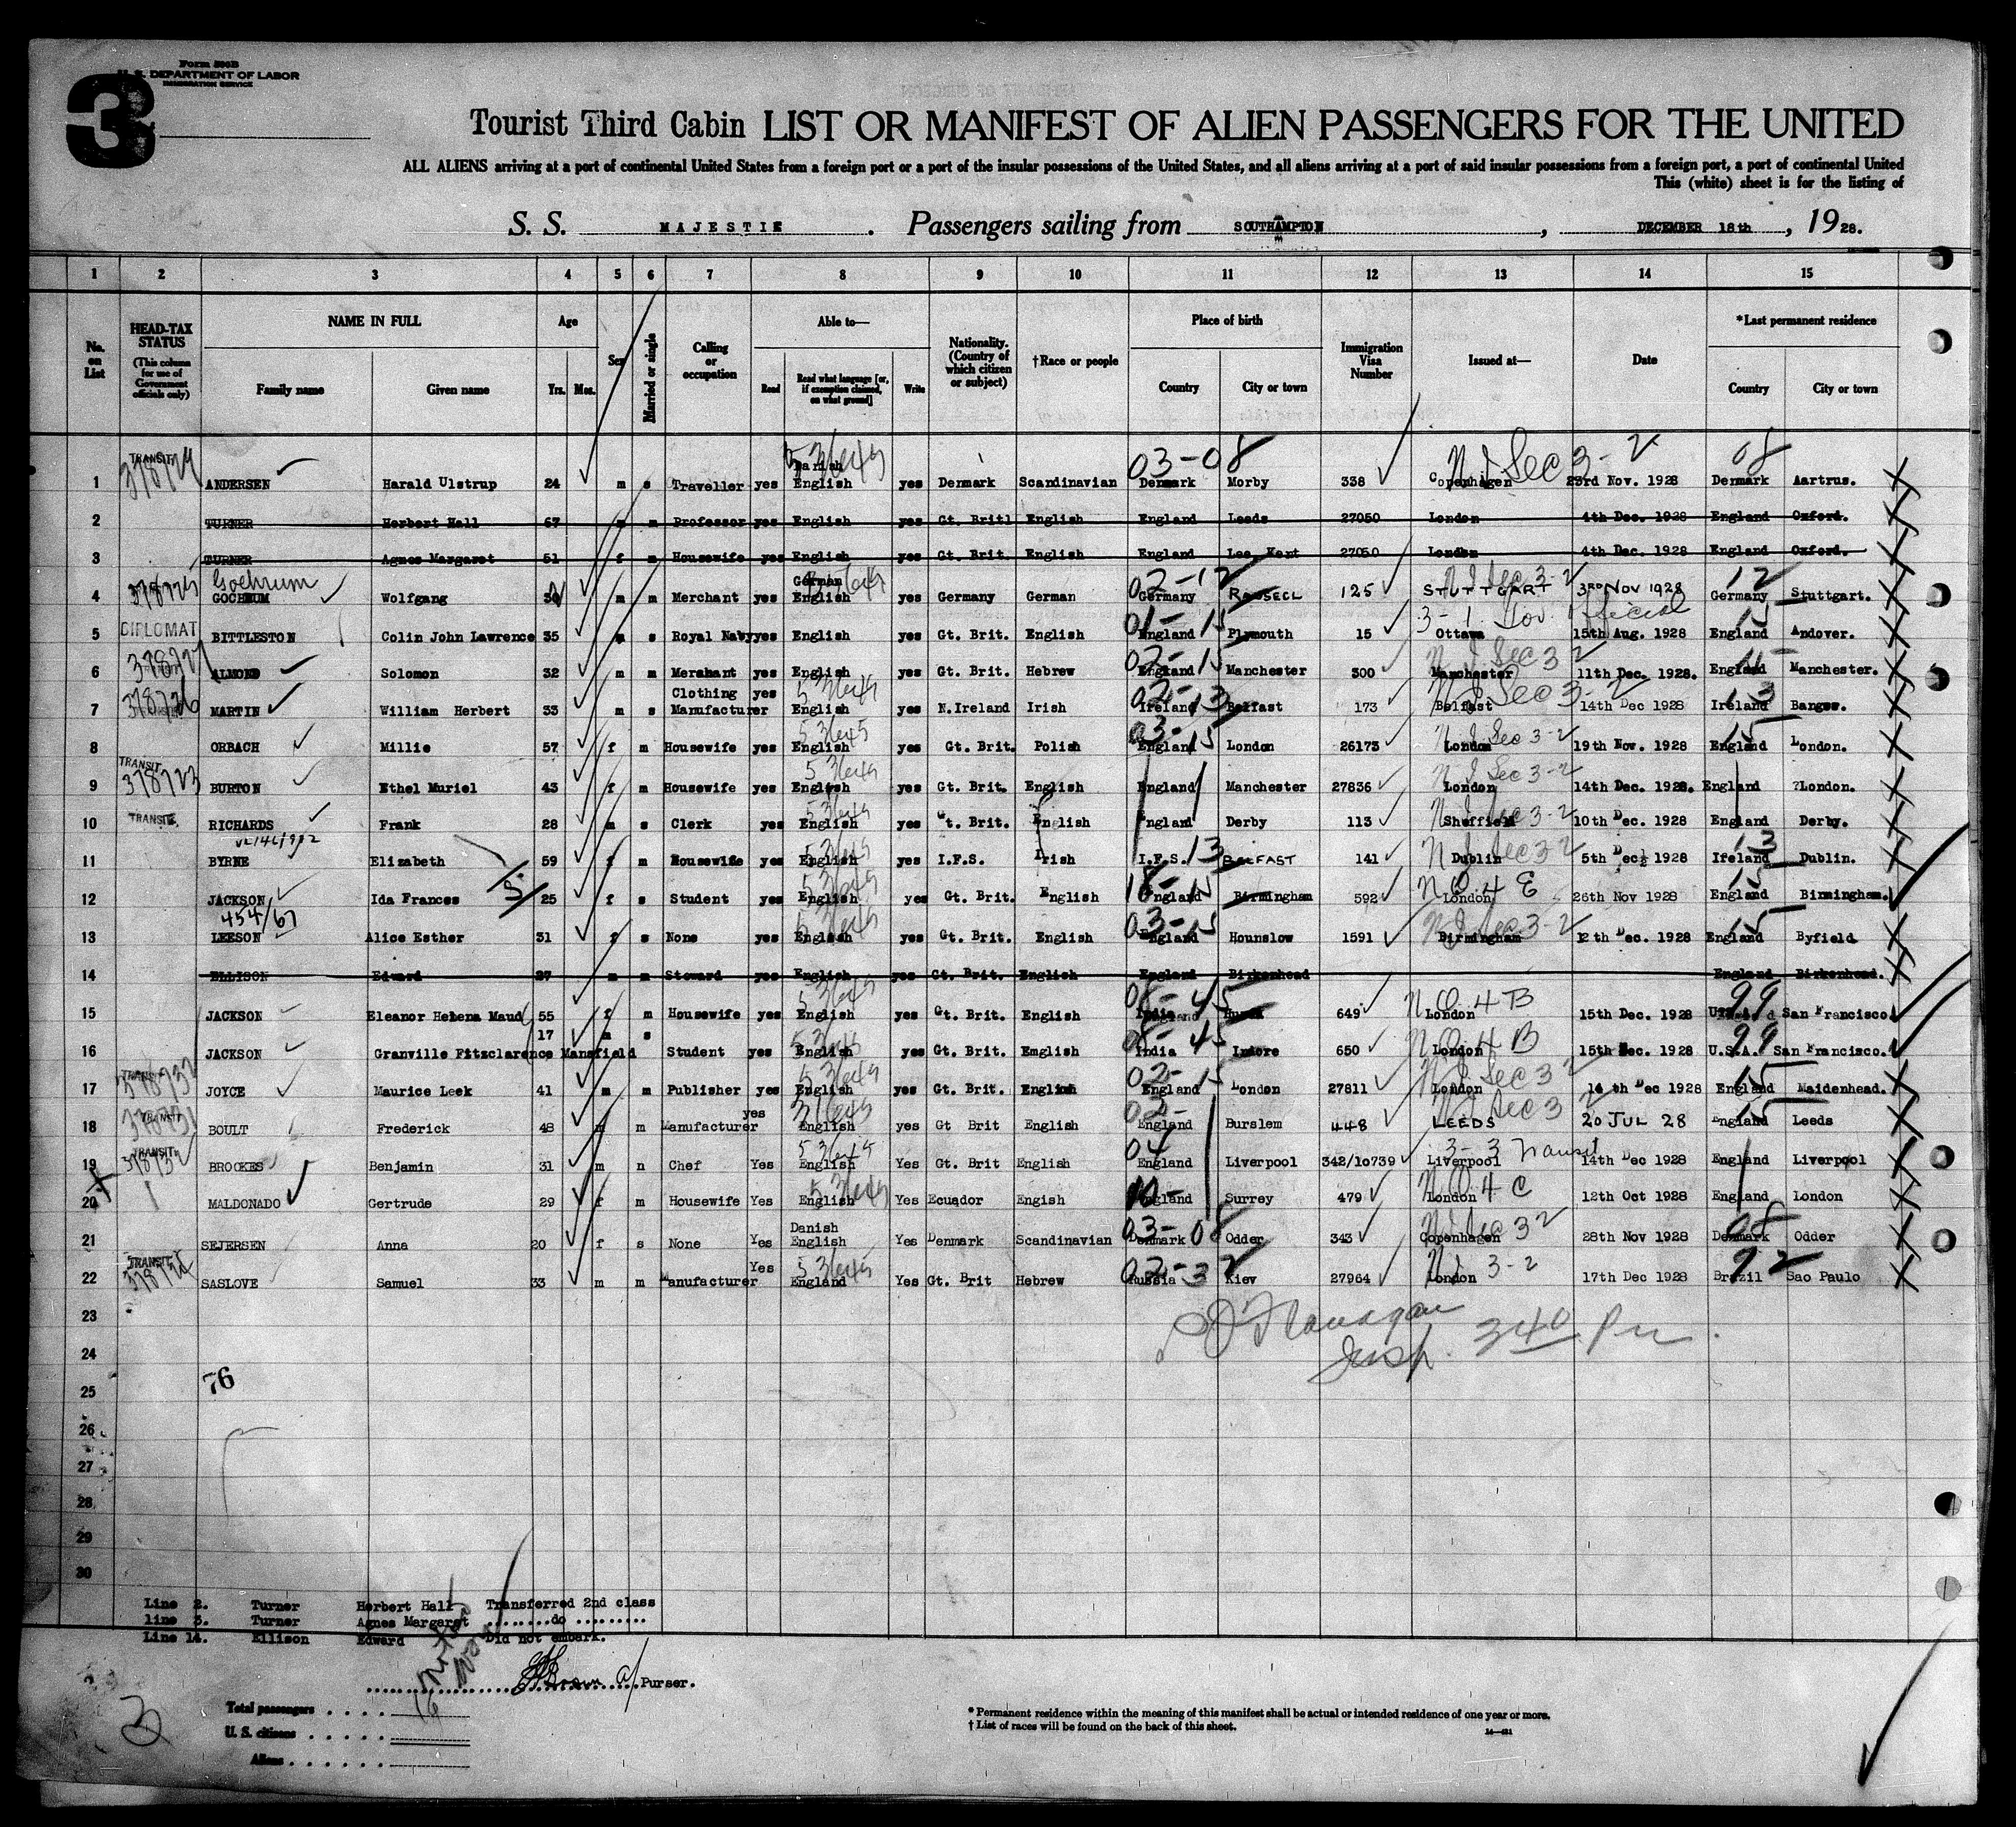 3
Form 500B
U. S. DEPARTMENT OF LABOR
IMMIGRATION SERVICE
Tourist Third Cabin LIST OR MANIFEST OF ALIEN PASSENGERS FOR THE UNITED
ALL ALIENS arriving at a port of continental United States from a foreign port or a port of the insular possessions of the United States, and all aliens arriving at a port of said insular possessions from a foreign port, a port of continental United
This (white) sheet is for the listing of
S. S. MAJESTIC . Passengers sailing from SOUTHAMPTON , DECEMBER 18th , 1928.
1 2 3 4 5 6 7 8 9 10 11 12 13 14 15
No. on List
HEAD-TAX STATUS (This column for use of Government officials only)
NAME IN FULL Family name Given name
Age Yrs. Mos.
Sex
Married or single
Calling or occupation
Able to— Read Read what language [or, if exemption claimed, on what ground] Write
Nationality. (Country of which citizen or subject)
†Race or people
Place of birth Country City or town
Immigration Visa Number
Issued at—
Date
*Last permanent residence Country City or town
1 TRANSIT 378724 ANDERSEN Harald Ulstrup 24 m s Traveller yes Danish English 53649 yes Denmark Scandinavian 03-08 Denmark Morby 338 Copenhagen N I Sec 3-2 23rd Nov. 1928 08 Denmark Aartrus.
2 TURNER Herbert Hall 67 m m Professor yes English yes Gt. Britl English England Leeds 27050 London 4th Dec. 1928 England Oxford.
3 TURNER Agnes Margaret 51 f m Housewife yes English yes Gt. Brit. English England Lee, Kent 27050 London 4th Dec. 1928 England Oxford.
4 378725 Gochrum GOCHRUM Wolfgang 30 m m Merchant yes German English yes Germany German 02-12 Germany 125 STUTTGART N I Sec 3-2 3RD NOV 1928 12 Germany Stuttgart.
5 DIPLOMAT BITTLESTON Colin John Lawrence 35 m s Royal Navy yes English yes Gt. Brit. English 01-15 England Plymouth 15 Ottawa 3-1 Gov. Official 15th Aug. 1928 15 England Andover.
6 378727 ALMOND Solomon 32 m m Merchant yes English yes Gt. Brit. Hebrew 02-15 England Manchester 300 Manchester N I Sec 3 2 11th Dec. 1928. 15 England Manchester.
7 378726 MARTIN William Herbert 33 m s Clothing Manufacturer yes English 53649 yes N.Ireland Irish 02-13 Ireland Belfast 173 Belfast N I Sec 3-2 14th Dec 1928 13 Ireland Bangor.
8 ORBACH Millie 57 f m Housewife yes English 53645 yes Gt. Brit. Polish 03-15 England London 26173 London N I Sec 3-2 19th Nov. 1928 15 England London.
9 TRANSIT 378723 BURTON Ethel Muriel 43 f m Housewife yes English 53649 yes Gt. Brit. English England Manchester 27836 London N I Sec 3-2 14th Dec. 1928. England ?London.
10 TRANSIT RICHARDS Frank 28 m s Clerk yes English 53649 yes Gt. Brit. English England Derby 113 Sheffield N I Sec 3-2 10th Dec. 1928 England Derby.
11 BYRNE Elizabeth 59 f m Housewife yes English yes I.F.S. Irish I.F.S. 13 BELFAST 141 Dublin N I Sec 3 2 5th Dec 1928 13 Ireland Dublin.
12 JACKSON Ida Frances 25 f s Student yes English 53649 yes Gt. Brit. English 18-15 England Birmingham 592 London N Q 4 E 26th Nov 1928 15 England Birmingham.
13 454/67 LEESON Alice Esther 31 f s None yes English 53649 yes Gt. Brit. English 03-15 England Hounslow 1591 Birmingham N I Sec 3-2 12th Dec. 1928 15 England Byfield
14 ELLISON Edward 27 m m Steward yes English yes Gt. Brit. English England Birkenhead England Birkenhead.
15 JACKSON Eleanor Helena Maud 55 f m Housewife yes English 53649 yes Gt. Brit. English 08-45 India 649 London N Q 4 B 15th Dec. 1928 99 U.S.A. San Francisco.
16 JACKSON Granville Fitzclarence Mansfield 17 m s Student yes English yes Gt. Brit. Emglish 08-45 India Indore 650 London N Q 4 B 15th Dec. 1928 99 U.S.A. San Francisco.
17 TRANSIT 378733 JOYCE Maurice Leek 41 m m Publisher yes English 53649 yes Gt. Brit. English 02-15 England London 27811 London N I Sec 3 2 14 th Dec 1928 15 England Maidenhead.
18 TRANSIT 378731 BOULT Frederick 48 m m Manufacturer yes English yes Gt Brit English 02- England Burslem 448 LEEDS N I Sec 3 2 20 JUL 28 15 England Leeds
19 TRANSIT 378732 BROOKES Benjamin 31 m n Chef Yes English 53645 Yes Gt. Brit English 04 England Liverpool 342/10739 Liverpool 3-3 Transit 14th Dec 1928 England Liverpool
20 MALDONADO Gertrude 29 f m Housewife Yes English 53649 Yes Ecuador Engish 10- England Surrey 479 London N Q 4 C 12th Oct 1928 England London
21 SEJERSEN Anna 20 f s None Yes Danish English Yes Denmark Scandinavian 03-08 Denmark Odder 343 Copenhagen N I Sec 3 2 28th Nov 1928 08 Denmark Odder
22 TRANSIT SASLOVE Samuel 33 m m Manufacturer Yes England 53649 Yes Gt. Brit Hebrew 02-32 Russia Kiev 27964 London N I 3-2 17th Dec 1928 92 Brazil Sao Paulo
23
O'Flanagan
24
Insp. 340 Pm.
25
76
26
27
28
29
30
Line 2. Turner Herbert Hall Transferred 2nd class
line 3. Turner Agnes Margaret ........do .........
Line 14. Ellison Edward Did not embark.
Purser.
3
Total passengers . . . .
U. S. citizens . . . . .
Aliens . . . . . .
* Permanent residence within the meaning of this manifest shall be actual or intended residence of one year or more.
† List of races will be found on the back of this sheet.